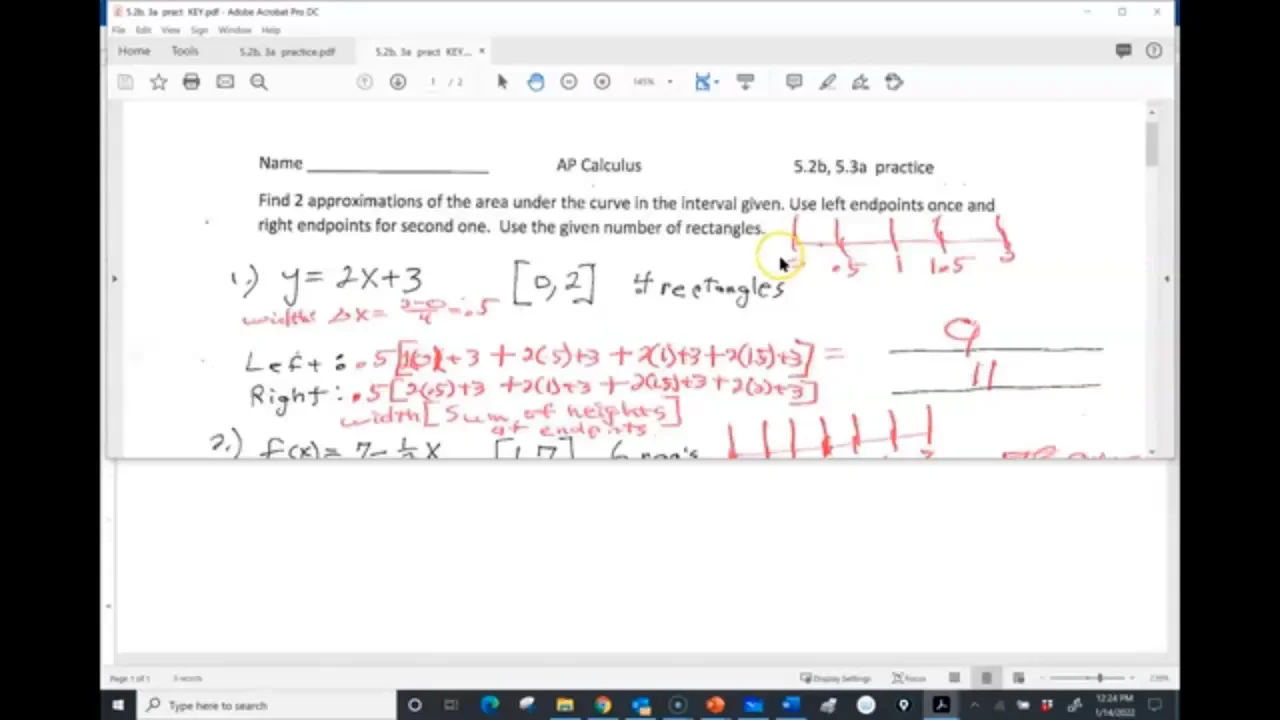 5.2b, 3a pract KEY.pdf - Adobe Acrobat Pro DC
File Edit View Sign Window Help
Home Tools 5.2b, 3a practice.pdf 5.2b, 3a pract KEY... ×
1 / 2 145%
Name AP Calculus 5.2b, 5.3a practice
Find 2 approximations of the area under the curve in the interval given. Use left endpoints once and
right endpoints for second one. Use the given number of rectangles.
.5 1 1.5
1.) y = 2x+3 [0,2] 4 rectangles
width: Δx = 2-0/4 = .5
Left: .5[ +3 + 2(.5)+3 + 2(1)+3 + 2(1.5)+3] = 9
Right: .5[2(.5)+3 + 2(1)+3 + 2(1.5)+3 + 2(2)+3] 11
width [Sum of heights]
at endpoints
2.) f(x) = 7 - 1/2 x [1,7] 6
Page 1 of 1 0 words Display Settings Focus
Type here to search
12:24 PM
1/14/2022